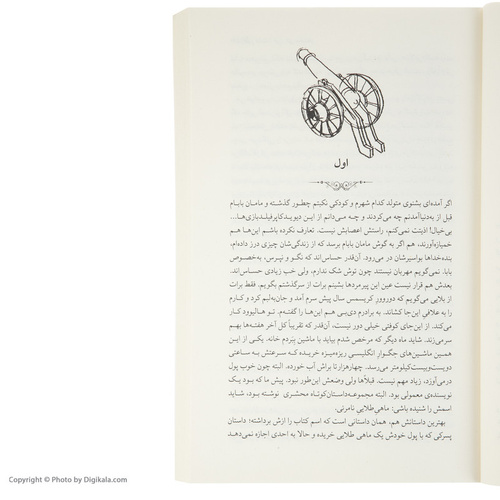 اول
اگر آمده‌ای بشنوی متولد کدام شهرم و کودکی نکبتم چطور گذشته و مامان بابام
قبل از به‌دنیا‌آمدنم چه می‌کردند و چه می‌دانم از این دیوید‌کاپرفیلد‌بازی‌ها...
بی‌خیال! اذیتت نمی‌کنم، راستش اعصابش نیست. تعارف نکرده باشم این‌ها هم
خمیازه‌آورند، هم اگر به گوش مامان بابام برسد که از زندگی‌شان چیزی درز داده‌ام،
بنده‌خداها بواسیرشان در می‌رود. آن‌قدر حساس‌اند که نگو و نپرس، به‌خصوص
بابا. نمی‌گویم مهربان نیستند چون توش شک ندارم، ولی خب زیادی حساس‌اند.
بعدش هم قرار نیست عین این پیرمردها بشینم برات از سرگذشتم بگویم. فقط برات
از بلایی می‌گویم که دوروور کریسمس سال پیش سرم آمد و جان‌به‌لبم کرد و کارم
را به علافیِ این‌جا کشاند. به برادرم دی‌بی هم این‌ها را گفته‌م. تو هالیوود کار
می‌کند. از این‌جای کوفتی خیلی دور نیست، آن‌قدر که تقریباً کل آخر هفته‌ها بهم
سر می‌زند. شاید ماه دیگر که مرخص شدم بیاید با ماشین ببردم خانه. یکی از این
همین ماشین‌های جگوار انگلیسی ریزه‌میزه خریده که سرعتش به ساعتی
دویست‌وبیست‌کیلومتر می‌رسد. چهارهزارتا براش آب خورده. البته چون خوب پول
درمی‌آورد، زیاد مهم نیست. قبلاًها ولی وضعش این‌طور نبود. پیش ما که بود یک
نویسنده‌ی معمولی بود. البته مجموعه‌داستان‌کوتاه محشری نوشته بود، شاید
اسمش را شنیده باشی: ماهی‌طلایی نامرئی.
بهترین داستانش هم، همان داستانی است که اسم کتاب را ازش برداشته؛ داستان
پسرکی که با پول خودش یک ماهی طلایی خریده و حالا به احدی اجازه نمی‌دهد
Copyright © Photo by Digikala.com